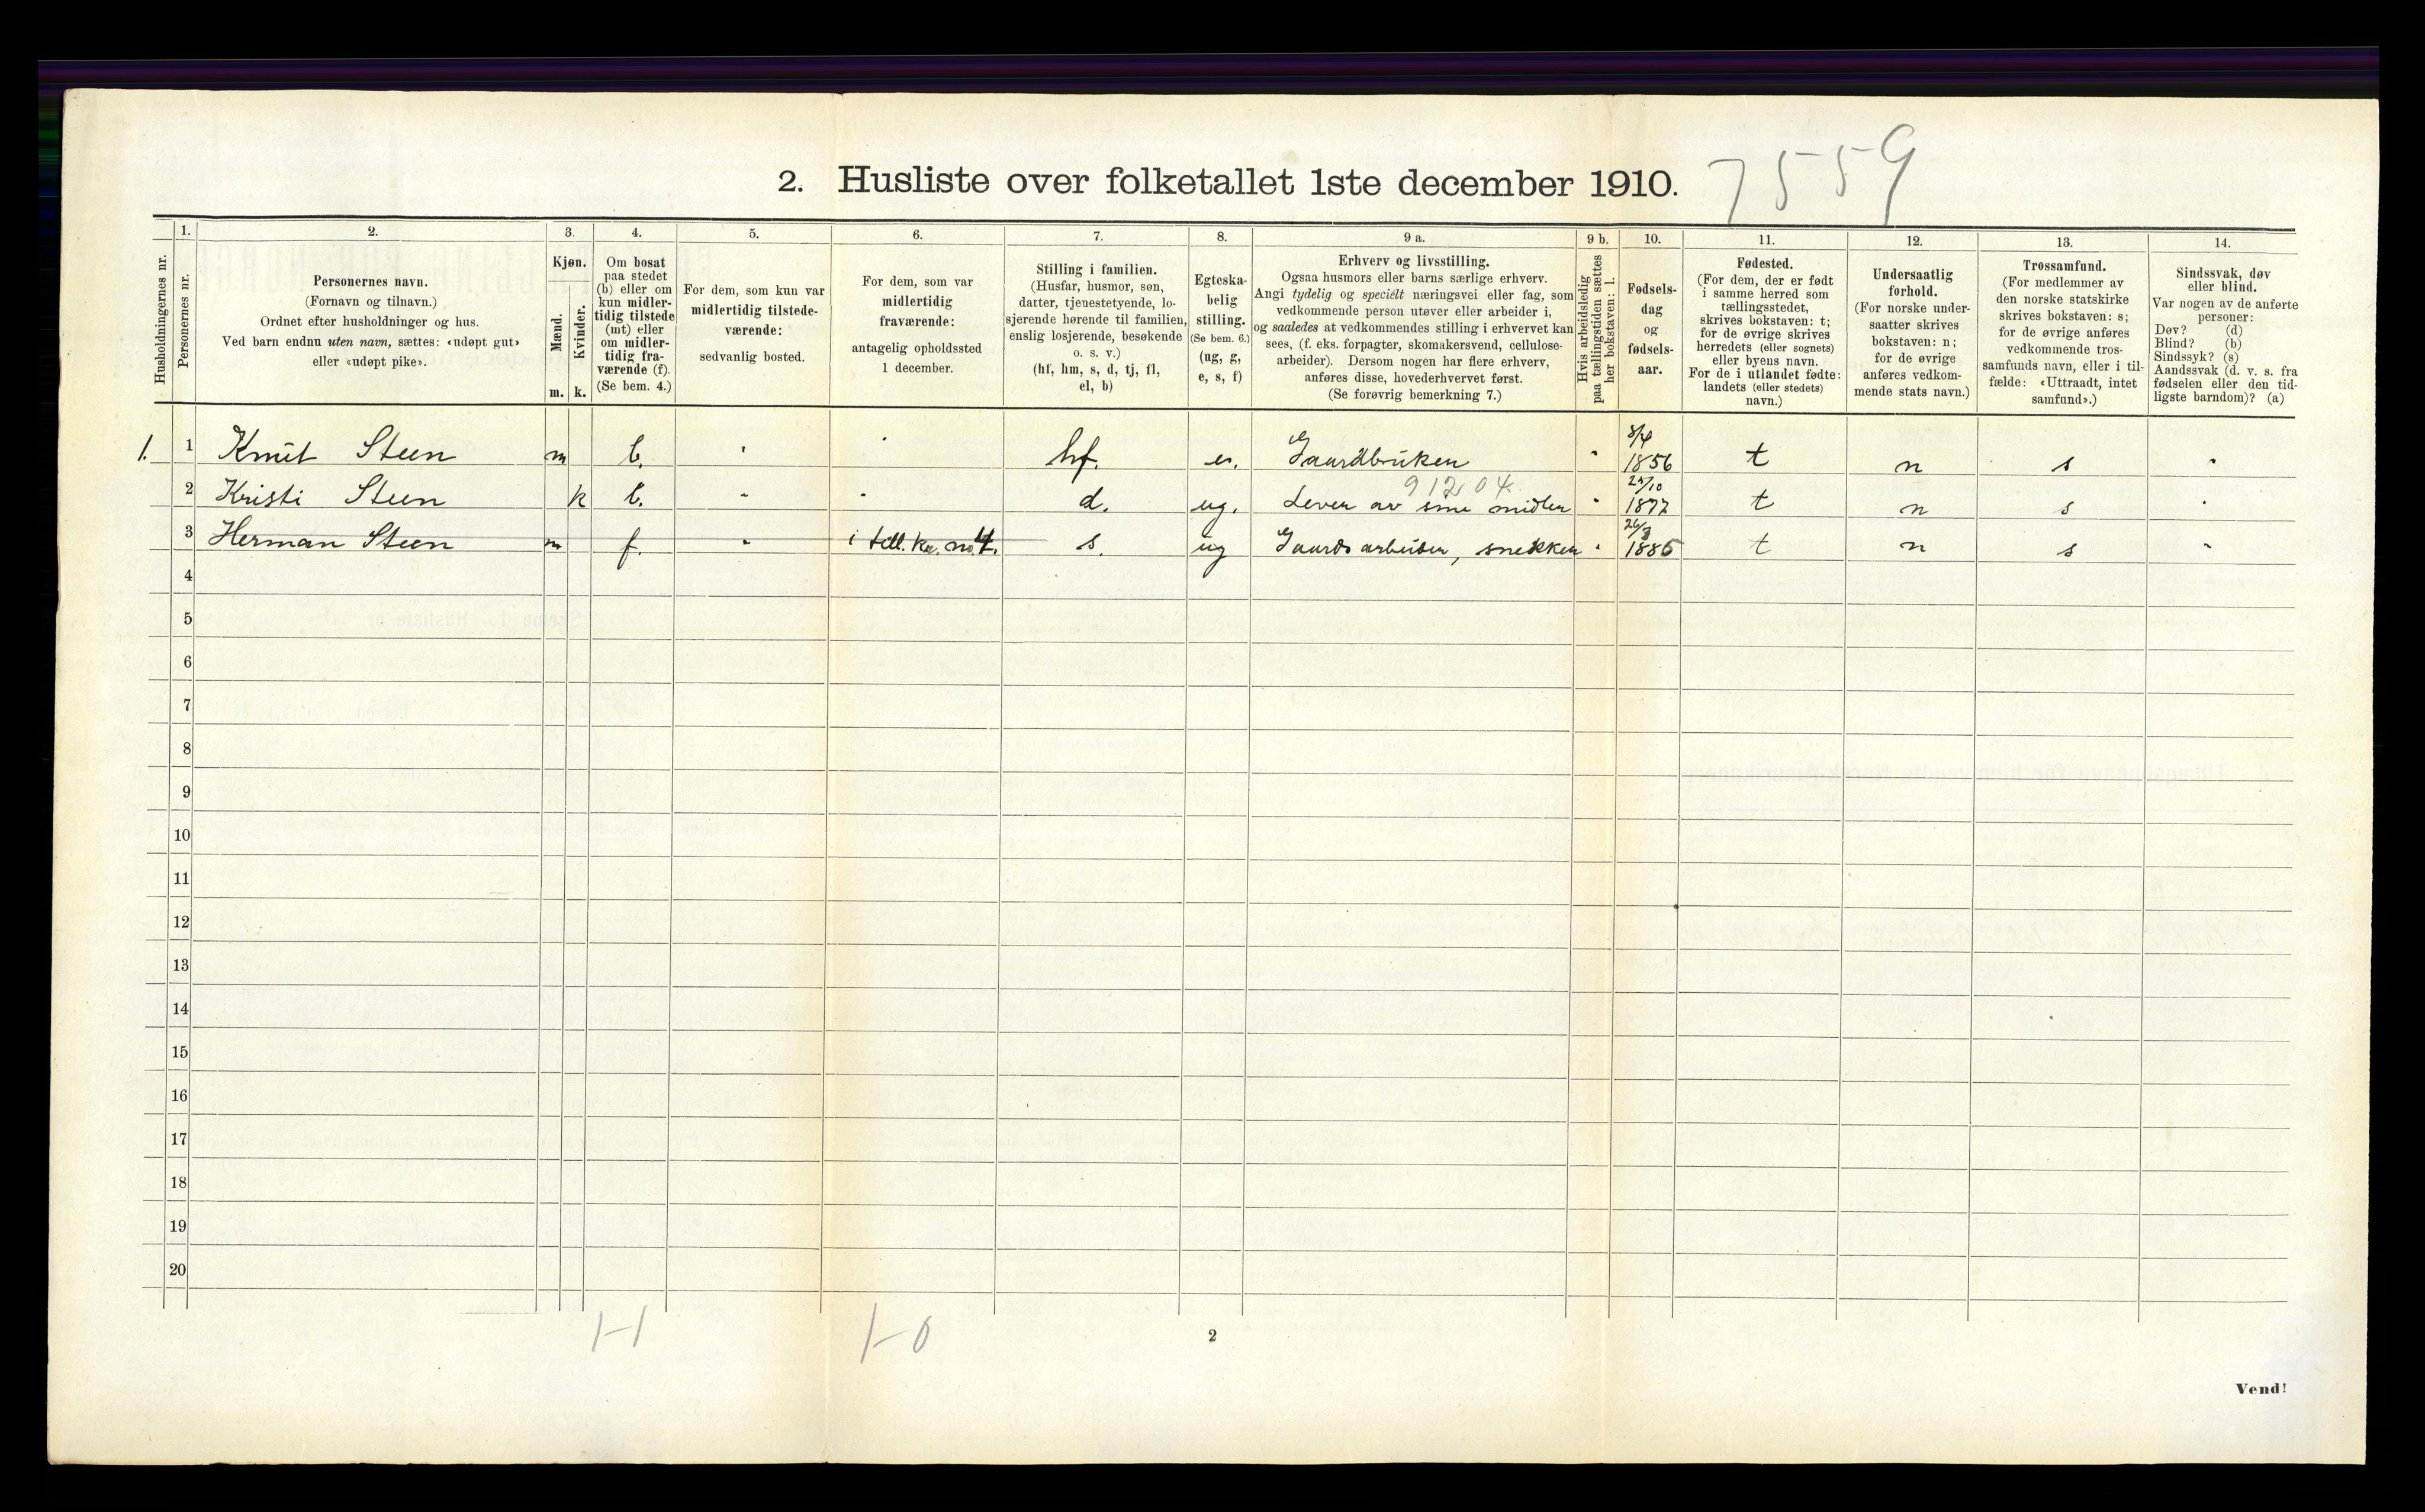 2. Husliste over folketallet 1ste december 1910. 7559
Husholdningernes nr.
1.
Personernes nr.
2.
Personernes navn.
(Fornavn og tilnavn.)
Ordnet efter husholdninger og hus.
Ved barn endnu uten navn, sættes: «udøpt gut»
eller «udøpt pike».
3.
Kjøn.
Mænd.
Kvinder.
m. k.
4.
Om bosat
paa stedet
(b) eller om
kun midler-
tidig tilstede
(mt) eller
om midler-
tidig fra-
værende (f).
(Se bem. 4.)
5.
For dem, som kun var
midlertidig tilstede-
værende:
sedvanlig bosted.
6.
For dem, som var
midlertidig
fraværende:
antagelig opholdssted
1 december.
7.
Stilling i familien.
(Husfar, husmor, søn,
datter, tjenestetyende, lo-
sjerende hørende til familien,
enslig losjerende, besøkende
o. s. v.)
(hf, hm, s, d, tj, fl,
el, b)
8.
Egteska-
belig
stilling.
(Se bem. 6.)
(ug, g,
e, s, f)
9 a.
Erhverv og livsstilling.
Ogsaa husmors eller barns særlige erhverv.
Angi tydelig og specielt næringsvei eller fag, som
vedkommende person utøver eller arbeider i,
og saaledes at vedkommendes stilling i erhvervet kan
sees, (f. eks. forpagter, skomakersvend, cellulose-
arbeider). Dersom nogen har flere erhverv,
anføres disse, hovederhvervet først.
(Se forøvrig bemerkning 7.)
9 b.
Hvis arbeidsledig
paa tællingstiden sættes
her bokstaven: l.
10.
Fødsels-
dag
og
fødsels-
aar.
11.
Fødested.
(For dem, der er født
i samme herred som
tællingsstedet,
skrives bokstaven: t;
for de øvrige skrives
herredets (eller sognets)
eller byens navn.
For de i utlandet fødte:
landets (eller stedets)
navn.)
12.
Undersaatlig
forhold.
(For norske under-
saatter skrives
bokstaven: n;
for de øvrige
anføres vedkom-
mende stats navn.)
13.
Trossamfund.
(For medlemmer av
den norske statskirke
skrives bokstaven: s;
for de øvrige anføres
vedkommende tros-
samfunds navn, eller i til-
fælde: «Uttraadt, intet
samfund».)
14.
Sindssvak, døv
eller blind.
Var nogen av de anførte
personer:
Døv? (d)
Blind? (b)
Sindssyk? (s)
Aandssvak (d. v. s. fra
fødselen eller den tid-
ligste barndom)? (a)
1. 1 Knut Steen m b. " " hf. e. Gaardbruker " 8/4 1856 t n s "
2 Kristi Steen k b. " " d. ug. Lever av sine midler 91204 " 1877 t n s "
3 Herman Steen m f. " i tell.kr. no. 4. s. ug Gaardsarbeider, snekker " 1885 t n s "
4
5
6
7
8
9
10
11
12
13
14
15
16
17
18
19
20
1-1 1-0
2
Vend!